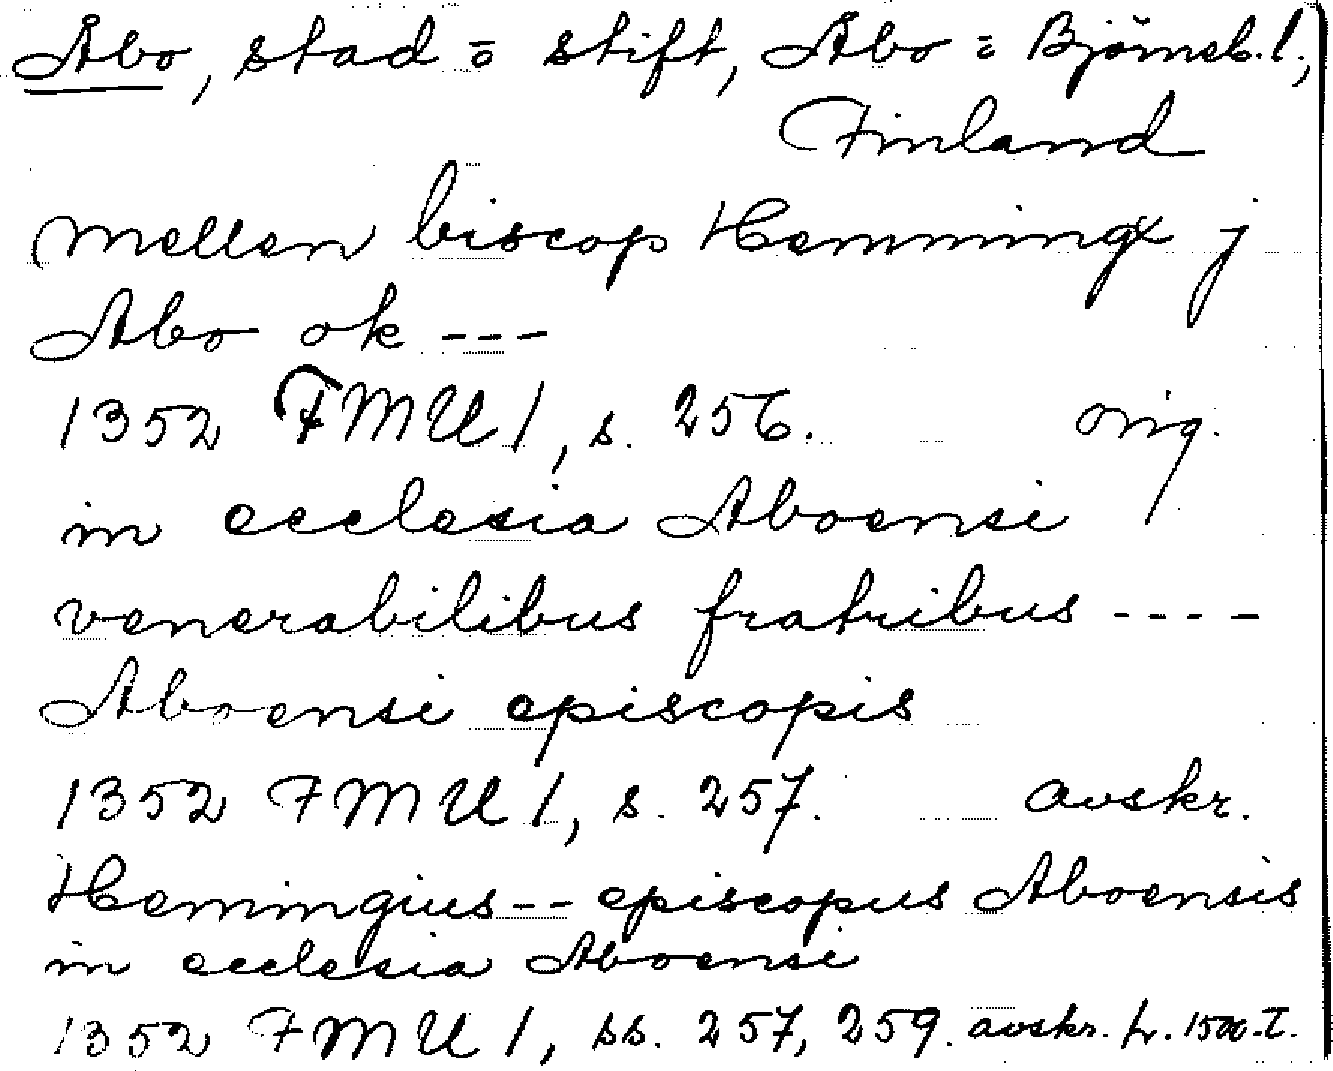 Åbo, stad o stift, Åbo o Björneb. l.,
Finland
mellen biscop Hemmingx j
Abo ok ---
1352 FMU 1, s. 256. orig.
in ecclesia Aboensi
venerabilibus fratribus ----
Aboensi episcopis
1352 FMU 1, s. 257. avskr.
Hemingius -- episcopus Aboensis
in ecclesia Aboensi
1352 FMU 1, ss. 257, 259. avskr. fr. 1500-t.